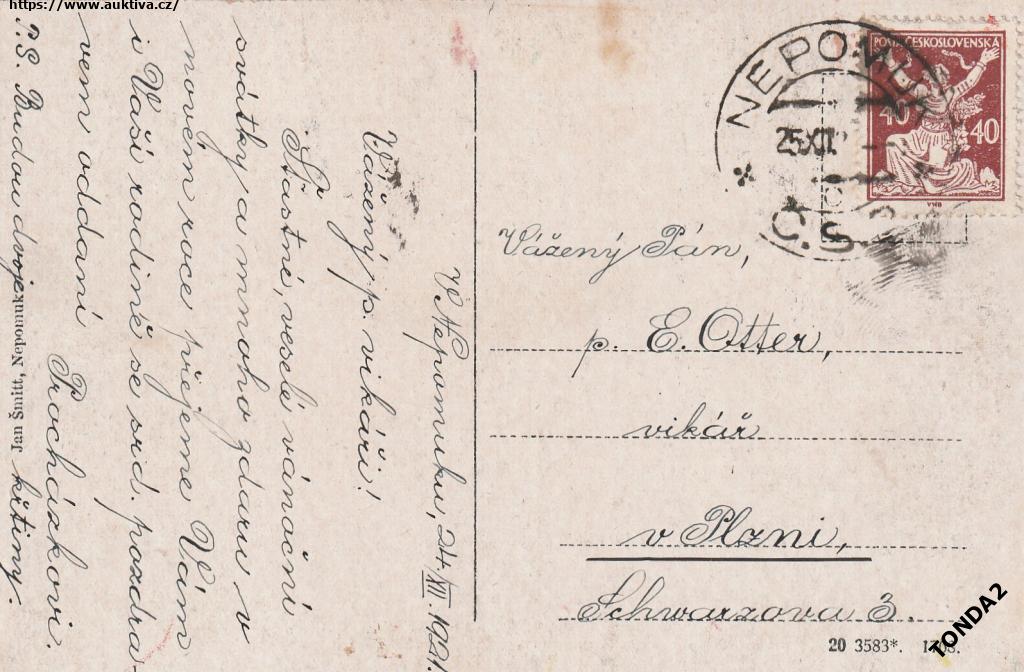 https://www.auktiva.cz/
V Nepomuku, 24./XII. 1921.
Vážený p. vikáři!
Šťastné, veselé vánoční
svátky a mnoho zdaru v
novém roce přejeme Vám
i Vaší rodině se srd. pozdra-
vem oddaní
Procházkovi.
P.S. Budou dvoje křtiny.
Jan Šmitt, Nepomuk
NEPOMUK
25.XII.
Č.S.
POŠTA ČESKOSLOVENSKÁ
40
40
VHB
Vážený Pán,
p. E. Otter,
vikář
v Plzni,
Schwarzova 3.
20 3583*. 1708.
TONDA2